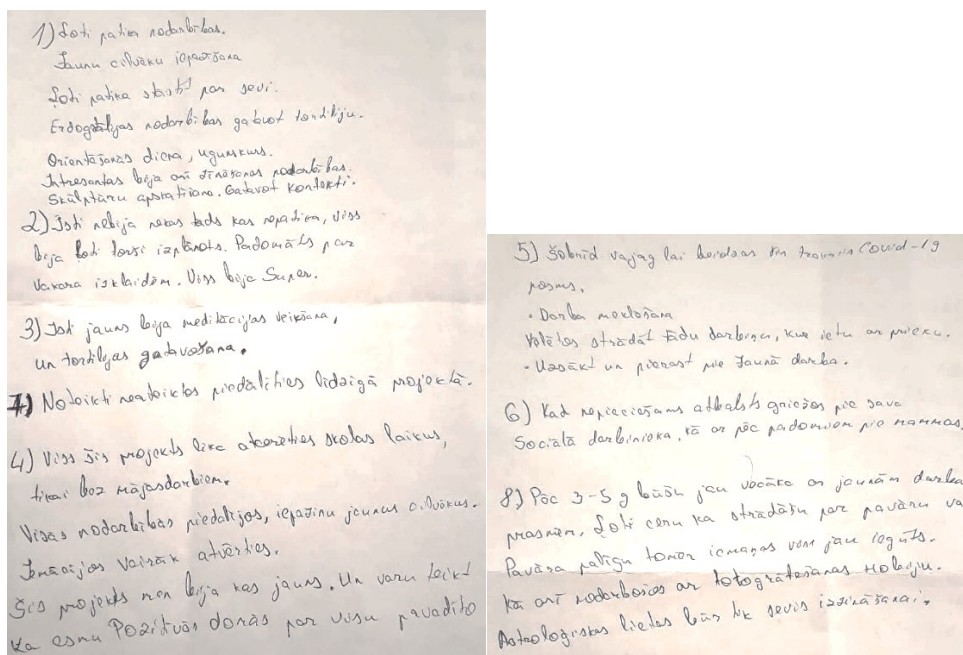 1) Ļoti patika nodarbības.
Jaunu cilvēku iepazīšana
Ļoti patika stāstīt par sevi.
nodarbības gatavot tortiliju.
Orientēšanās diena, ugunskurs.
Intresantas bija arī zīmēšanas nodarbības.
Skulptūru apskatīšana. Gatavot
2) Īsti nebija nekas tāds kas nepatika, viss
bija ļoti forši izplānots. Padomāts par
vakara izklaidēm. Viss bija Super.
3) Īsti jauns bija meditācijas veikšana,
un tortilijas gatavošana.
7) Noteikti neatteiktos piedalīties līdzīgā projektā.
4) Viss šis projekts lika atcerēties skolas laikus,
tikai bez mājasdarbiem.
Visās nodarbībās piedalījos, iepazinu jaunus cilvēkus.
Iemācījos vairāk atvērties.
Šis projekts man bija kas jauns. Un varu teikt
ka esmu Pozitīvās domās par visu pavadīto
5) Šobrīd vajag lai beidzas Covid-19
posms,
• Darba meklēšana
Vēlētos strādāt tādu darbiņu, kur ietu ar prieku.
• Uzsākt un pierast pie Jaunā darba.
6) Kad nepieciešams atbalsts griežos pie sava
Sociālā darbinieka, kā ar pēc padomiem pie mammas.
8) Pēc 3-5 g būšu jau vecāka ar jaunām darba
prasmēm. Ļoti ceru ka strādāšu par pavāru va
Pavāra palīgu tomēr iemaņas man jau iegūts.
Kā arī nodarbošos ar fotogrāfēšanas Hobiju.
Astroloģiskas lietas būs tik sevis izzināšanai.